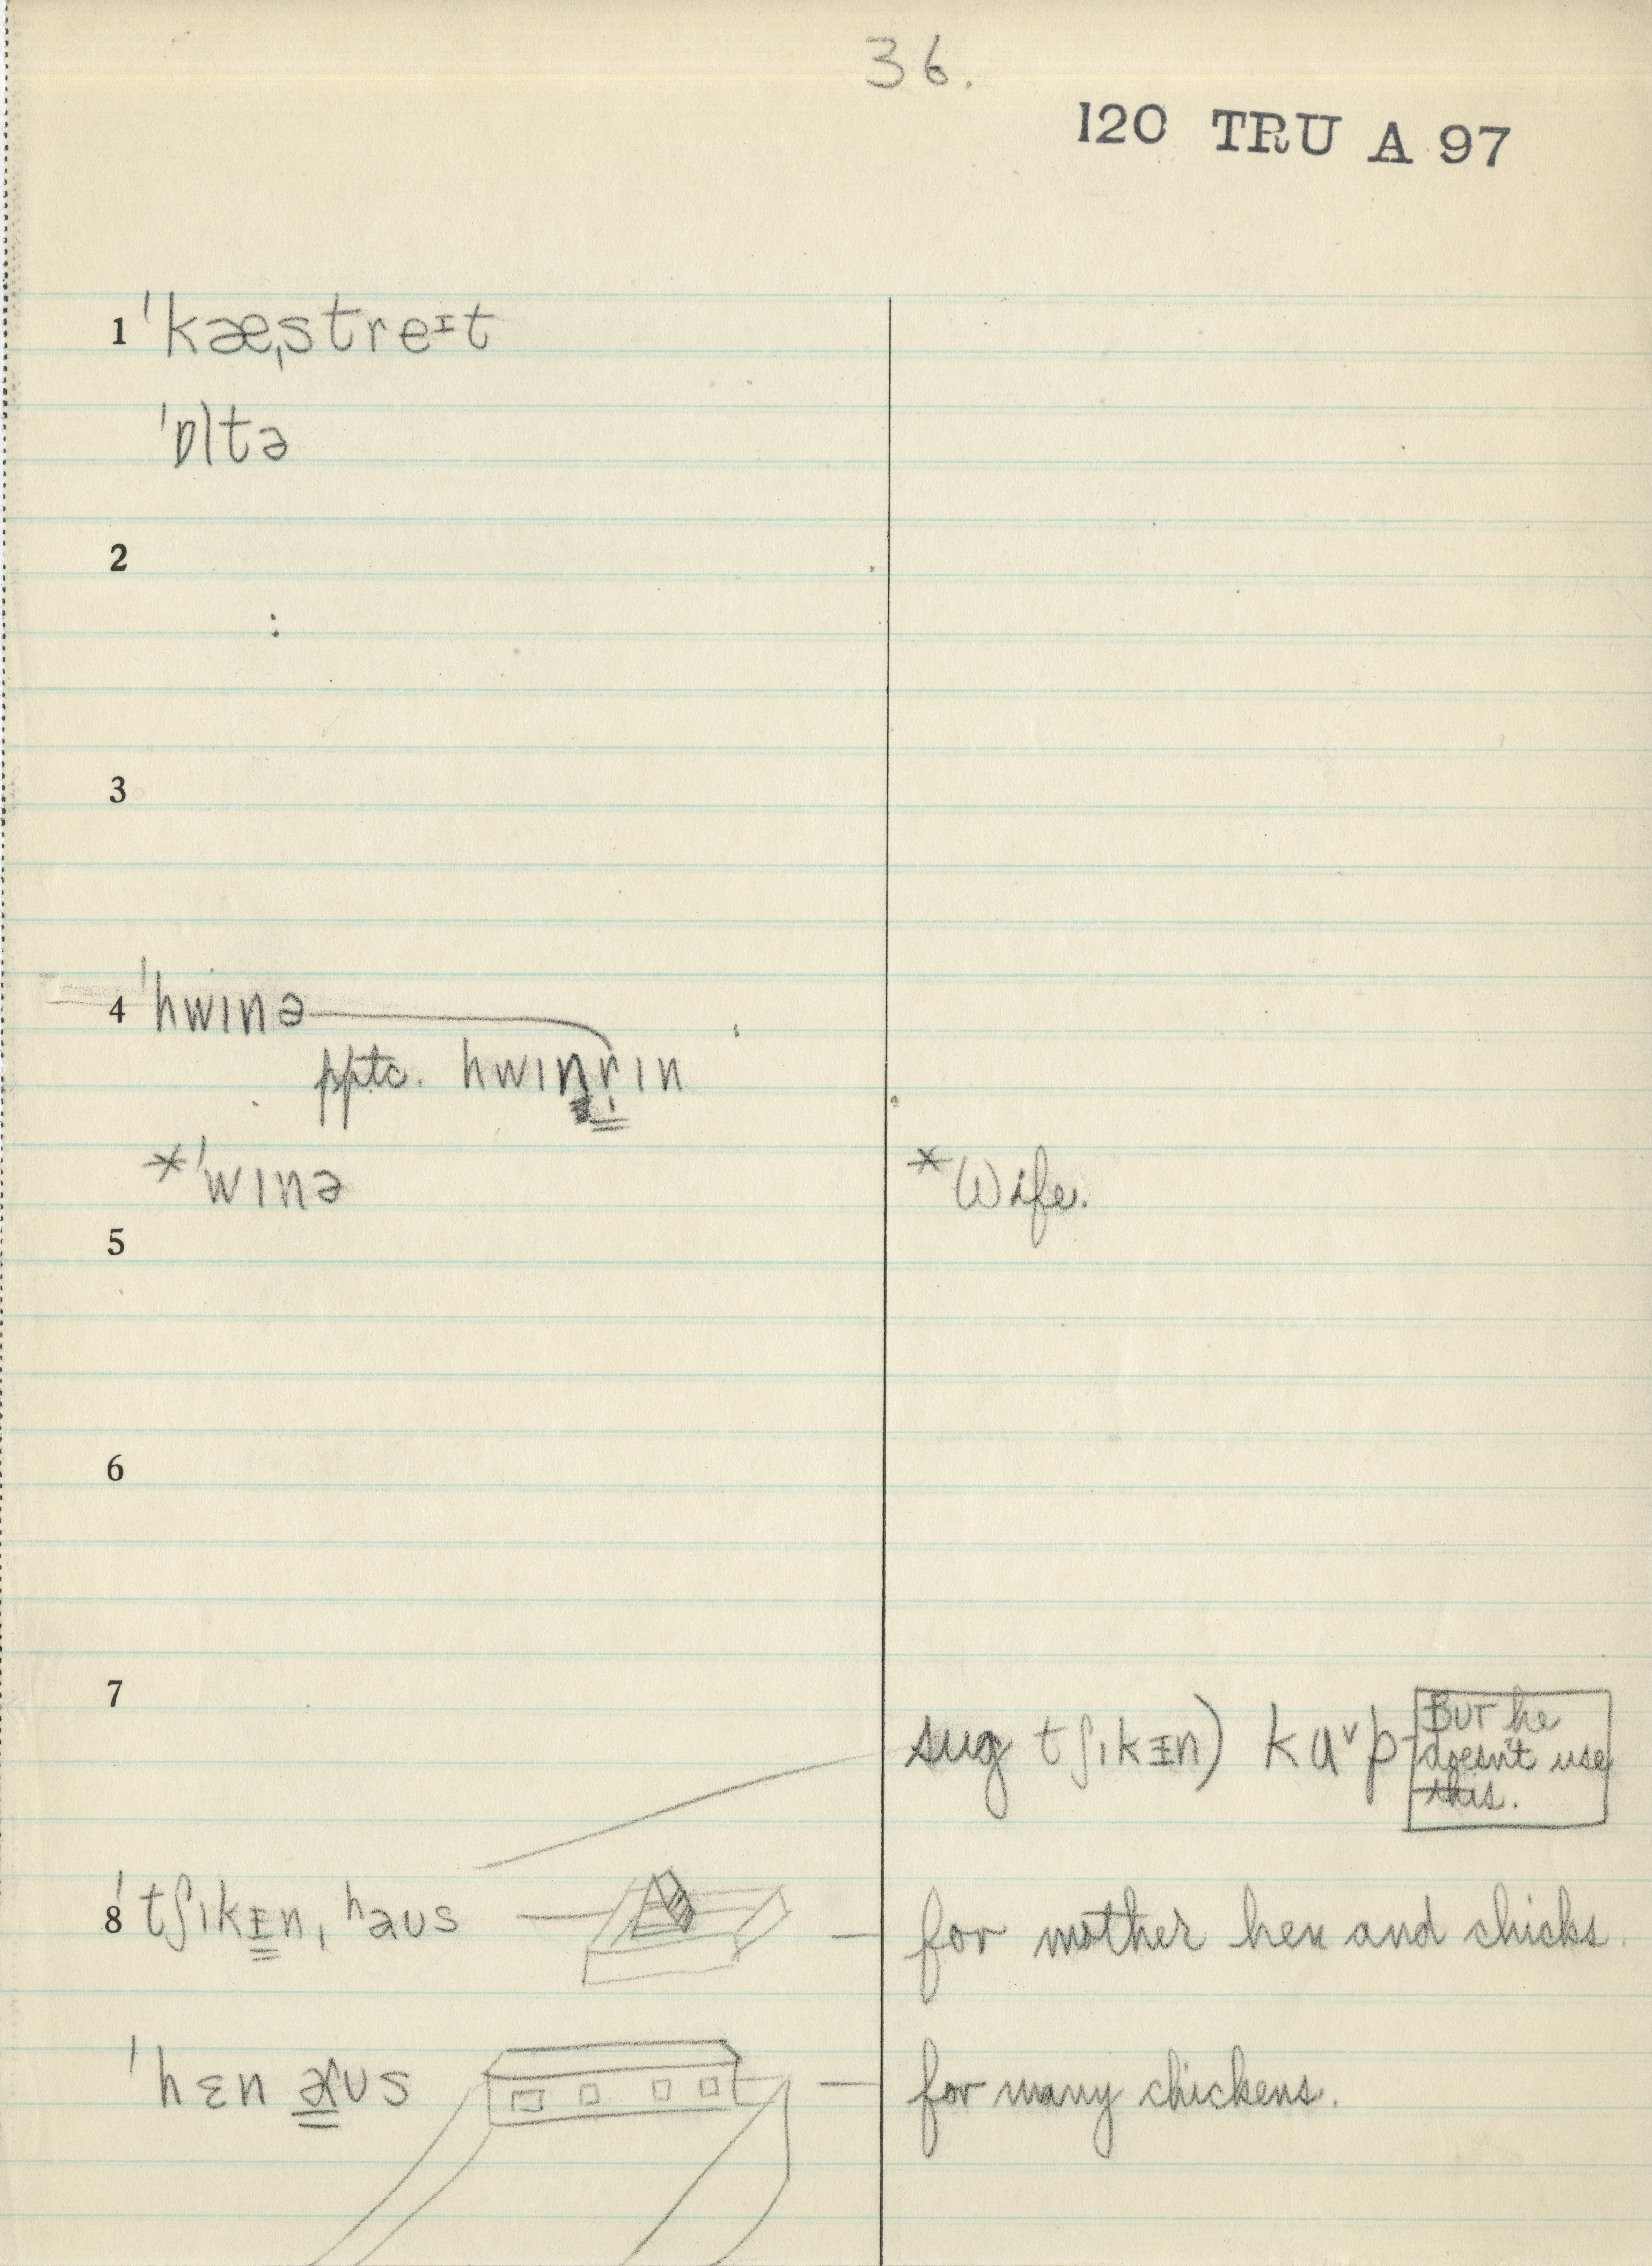 36.
120 TRU A 97
1 ˈkæˌstreɪt
ˈɒltə
2
3
4 ˈhwɪnə
pptc. hwɪnrɪn
*ˈwɪnə *Wife.
5
6
7
sug tʃɪkɪn) kuᵛp BUT he
doesn't use
this.
8 ˈtʃɪkɪnˌʰaus — for mother hen and chicks.
ˈhɛn aus — for many chickens.